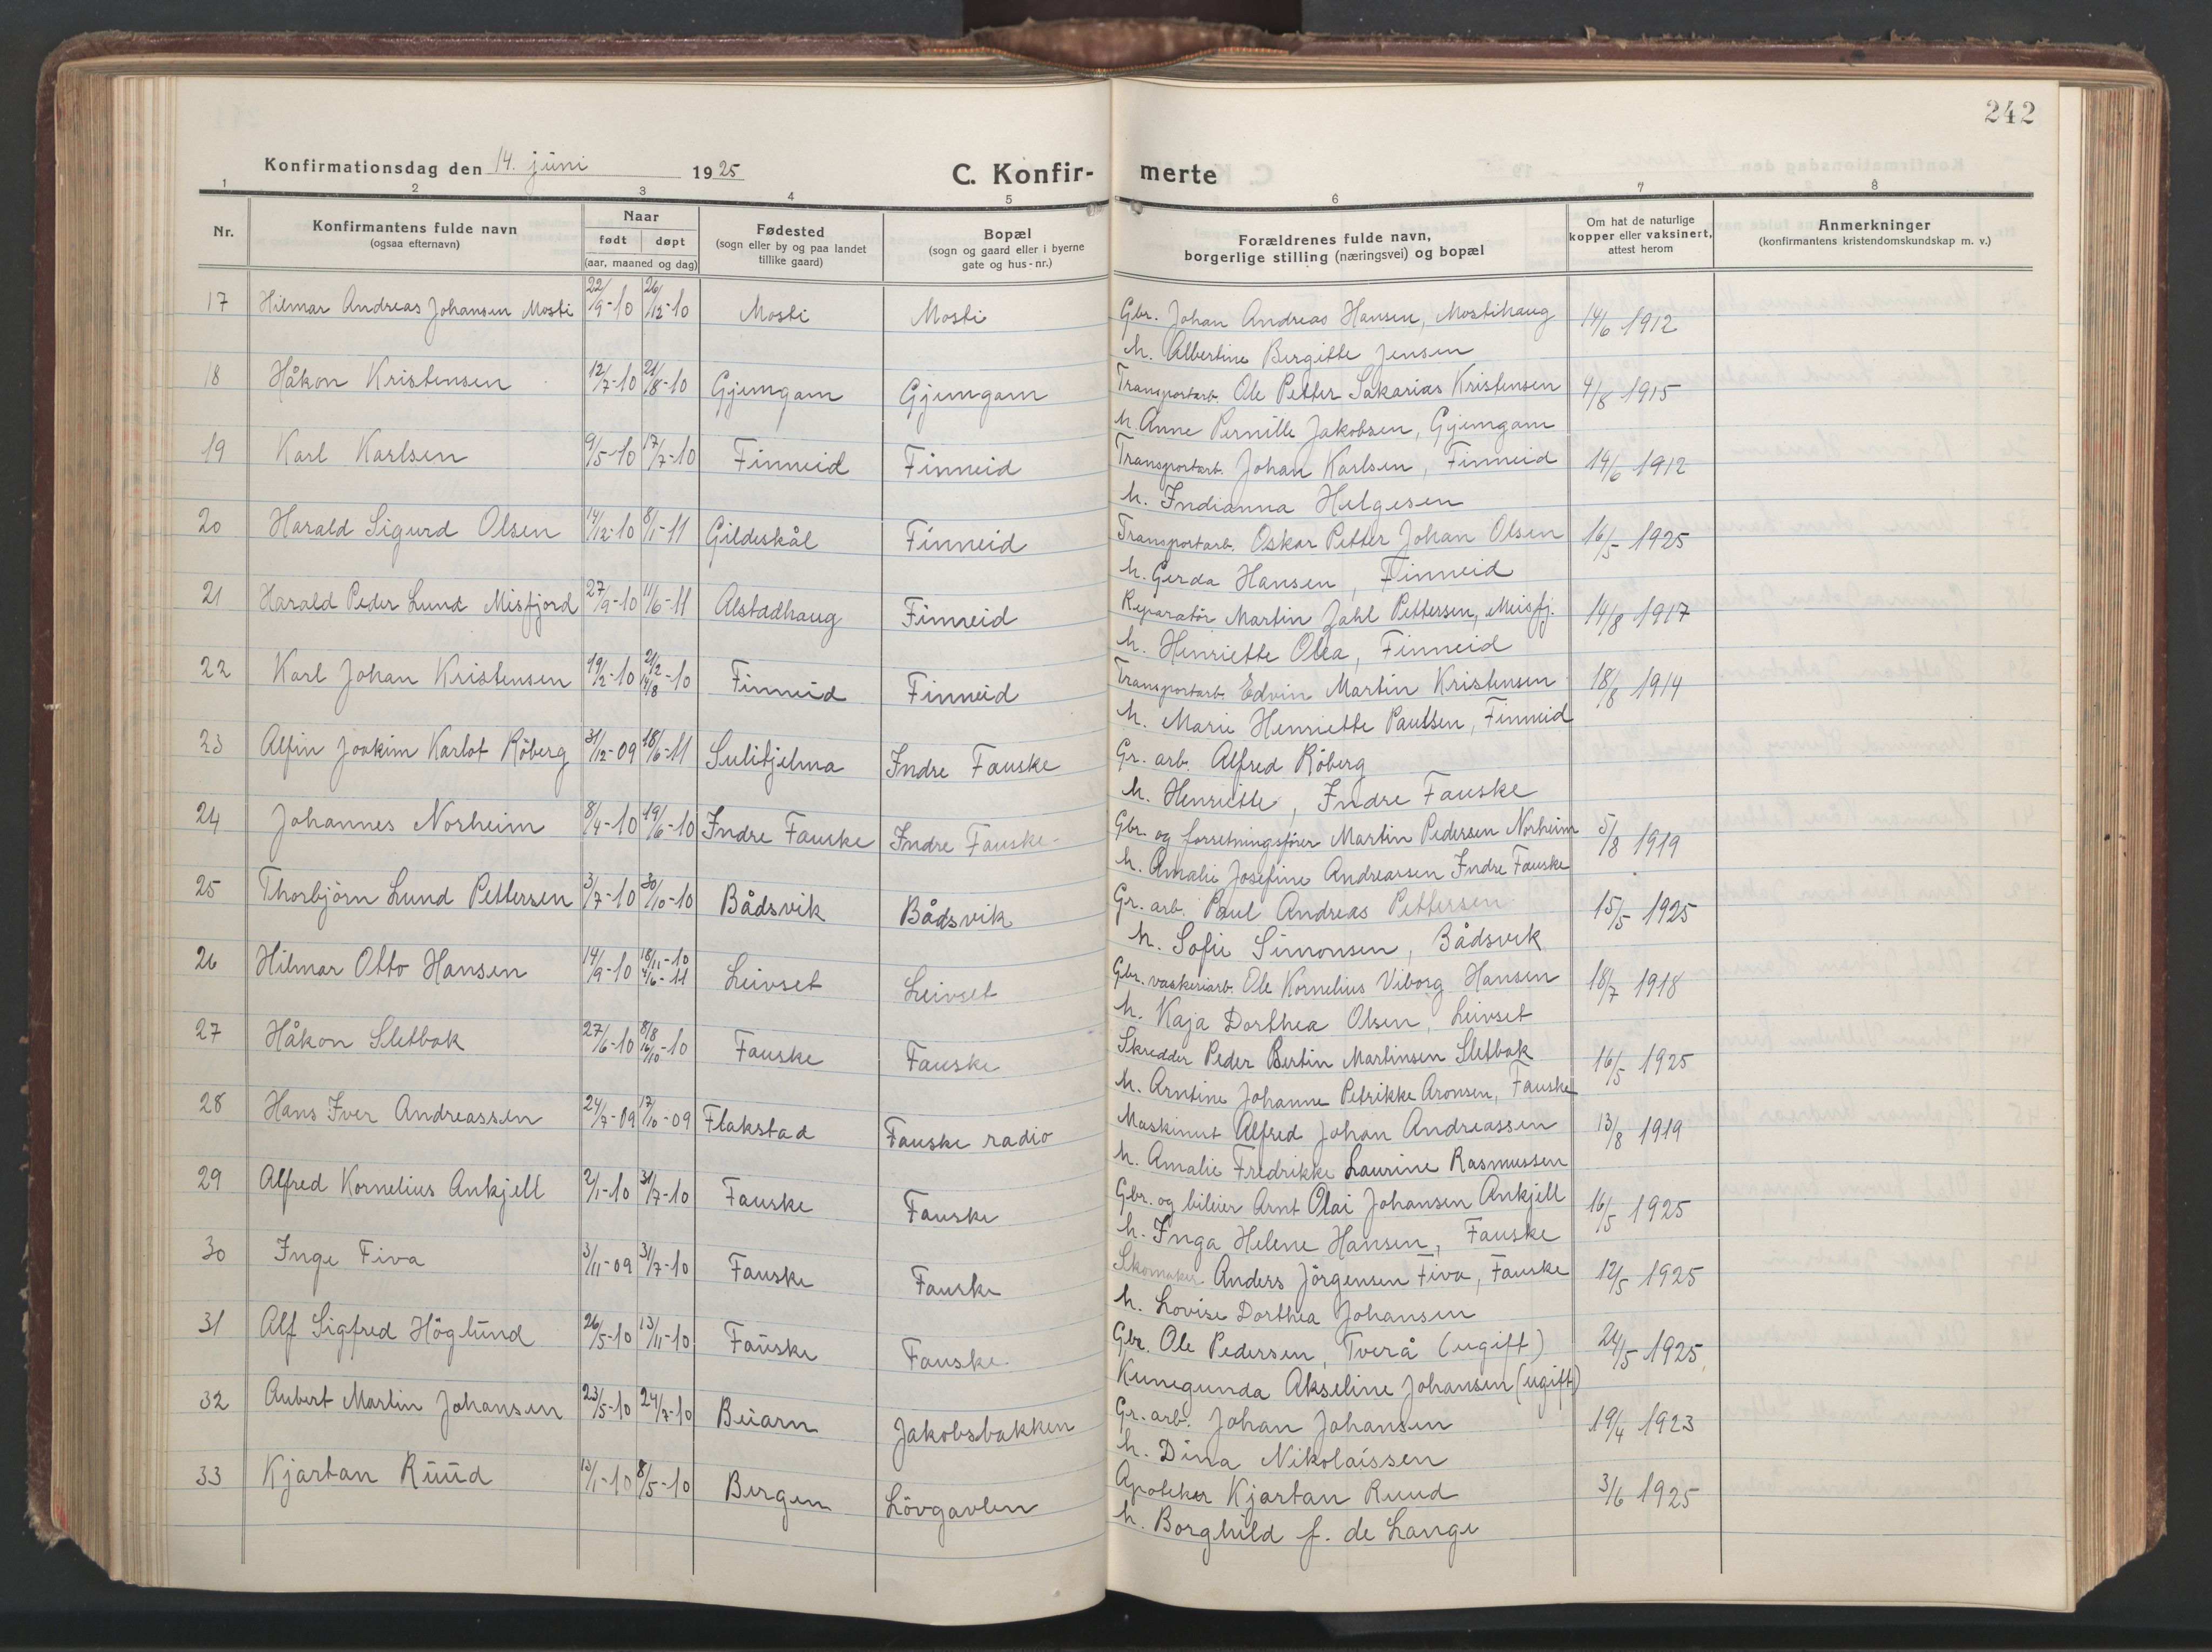 242
Konfirmationsdag den 14. juni 1925 C. Konfir- merte
1 2 3 4 5 6 7 8
Nr. Konfirmantens fulde navn (ogsaa efternavn) Naar født døpt (aar, maaned og dag) Fødested (sogn eller by og paa landet tillike gaard) Bopæl (sogn og gaard eller i byerne gate og hus-nr.) Forældrenes fulde navn, borgerlige stilling (næringsvei) og bopæl Om hat de naturlige kopper eller vaksinert, attest herom Anmerkninger (konfirmantens kristendomskundskap m. v.)
17 Hilmar Andreas Johansen Mosti 22/9-10 26/12-10 Mosti Mosti Gbr. Johan Andreas Hansen, Mostihaug 14/6 1912
h. Albertine Bergitte Jensen
18 Håkon Kristensen 12/7-10 21/8-10 Gjemgam Gjemgam Transportarb. Ole Petter Sakarias Kristensen 4/8 1915
h. Anne Pernille Jakobsen, Gjemgam
19 Karl Karlsen 9/5-10 17/7-10 Finneid Finneid Transportarb. Johan Karlsen, Finneid 14/6 1912
h. Indianna Helgesen
20 Harald Sigurd Olsen 14/12-10 8/1-11 Gildeskål Finneid Transportarb. Oskar Petter Johan Olsen 16/5 1925
h. Gerda Hansen, Finneid
21 Harald Peder Lund Misfjord 27/9-10 11/6-11 Alstadhaug Finneid Reparatör Martin Dahl Pettersen, Meisfj. 14/8 1917
h. Henriette Olea, Finneid
22 Karl Johan Kristensen 19/2-10 21/2 14/8-10 Finneid Finneid Transportarb. Edvin Martin Kristensen 18/8 1914
h. Marie Henriette Paulsen, Finneid
23 Alfin Joakim Karlot Röberg 31/12-09 18/6-11 Sulitjelma Indre Fauske Gr. arb. Alfred Röberg
h. Henriette, Indre Fauske
24 Johannes Norheim 8/4-10 19/6-10 Indre Fauske Indre Fauske Gbr. og forretningsfører Martin Pedersen Norheim 5/8 1919
h. Amalie Josefine Andreassen Indre Fauske
25 Thorbjörn Lund Pettersen 3/7-10 30/10-10 Bådsvik Bådsvik Gr. arb. Paul Andreas Pettersen 15/5 1925
h. Sofie Simonsen, Bådsvik
26 Hilmar Otto Hansen 14/9-10 18/11-10 4/6-11 Leivset Leivset Gbr. vaskeriarb. Ole Kornelius Viborg Hansen 18/7 1918
h. Kaja Dorthea Olsen, Leivset
27 Håkon Sletbak 27/6-10 8/8 16/10-10 Fauske Fauske Skredder Peder Bertin Martinsen Sletbak 16/5 1925
h. Arntine Johanne Petrikke Aronsen, Fauske
28 Hans Iver Andreassen 24/7-09 17/10-09 Flakstad Fauske radio Maskinist Alfred Johan Andreassen 13/8 1919
h. Amalie Fredrikke Laurine Rasmussen
29 Alfred Kornelius Ankjell 2/1-10 31/7-10 Fauske Fauske Gbr. og bileier Arnt Olai Johansen Ankjell 16/5 1925
h. Inga Helene Hansen, Fauske
30 Inge Fiva 3/11-09 31/7-10 Fauske Fauske Skomaker Anders Jörgensen Fiva, Fauske 12/5 1925
h. Lovise Dorthea Johansen
31 Alf Sigfred Höglund 26/5-10 13/11-10 Fauske Fauske. Gbr. Ole Pedersen, Tverå (ugift) 24/5 1925,
Kunegunda Akseline Johansen (ugift)
32 Aubert Martin Johansen 23/5-10 24/7-10 Beiarn Jakobsbakken Gr. arb. Johan Johansen 19/4 1923
h. Dina Nikolaissen
33 Kjartan Ruud 13/1-10 8/5-10 Bergen Lövgavlen Apoteker Kjartan Ruud 3/6 1925
h. Borghild f. de Lange